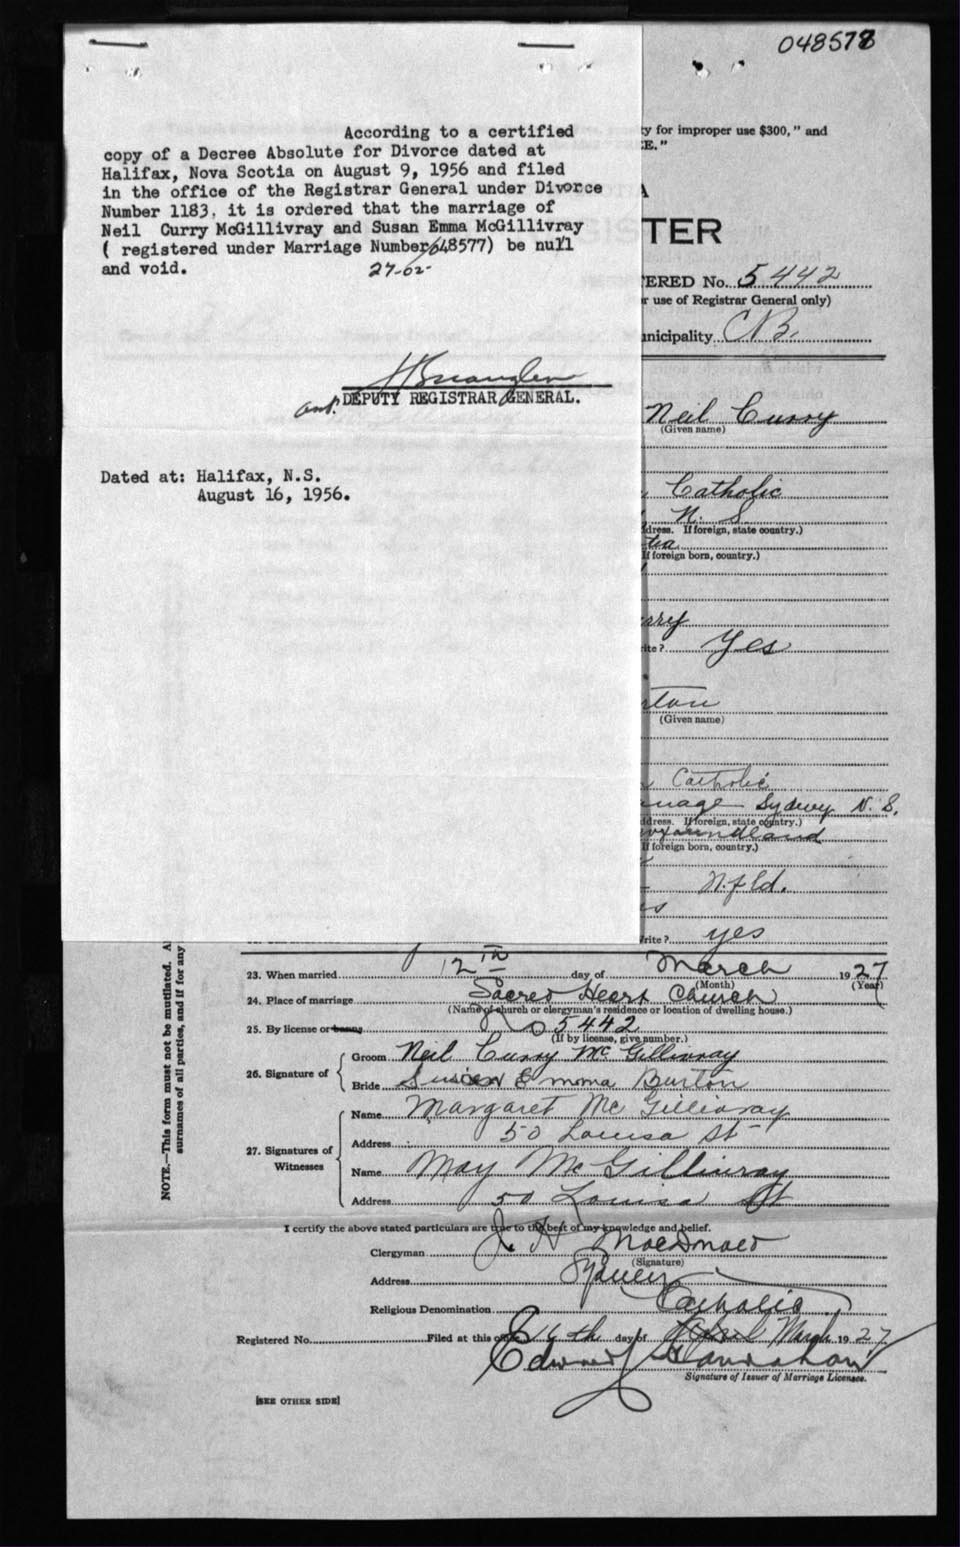 048578
According to a certified
copy of a Decree Absolute for Divorce dated at
Halifax, Nova Scotia on August 9, 1956 and filed
in the office of the Registrar General under Divorce
Number 1183, it is ordered that the marriage of
Neil Curry McGillivray and Susan Emma McGillivray
( registered under Marriage Number 048577) be null
and void.
27-02-
DEPUTY REGISTRAR GENERAL.
Dated at: Halifax, N.S.
August 16, 1956.
for improper use $300," and
TER
ERED No. 5442
use of Registrar General only)
nicipality C B.
Neil Curry
(Given name)
Catholic
N. S.
dress. If foreign, state country.)
If foreign born, country.)
rite? Yes
(Given name)
Catholic
Sydney N. S.
dress. If foreign, state country.)
If foreign born, country.)
Nfld.
Write? yes
NOTE.—This form must not be mutilated. A
surnames of all parties, and if for any
23. When married 12th day of March 1927
(Month) (Year)
24. Place of marriage Sacred Heart Church
(Name of church or clergyman's residence or location of dwelling house.)
25. By license or banns No 5442
(If by license, give number.)
26. Signature of
Groom Neil Curry McGillivray
Bride Susien Emma Burton
27. Signatures of Witnesses
Name Margaret McGillivray
Address 50 Louisa St
Name May McGillivray
Address 50 Louisa St
I certify the above stated particulars are true to the best of my knowledge and belief.
Clergyman J. H. MacDonald
(Signature)
Address Sydney
Religious Denomination Catholic
Registered No. Filed at this office 14th day of April March 1927
Edward
Signature of Issuer of Marriage Licenses.
[SEE OTHER SIDE]